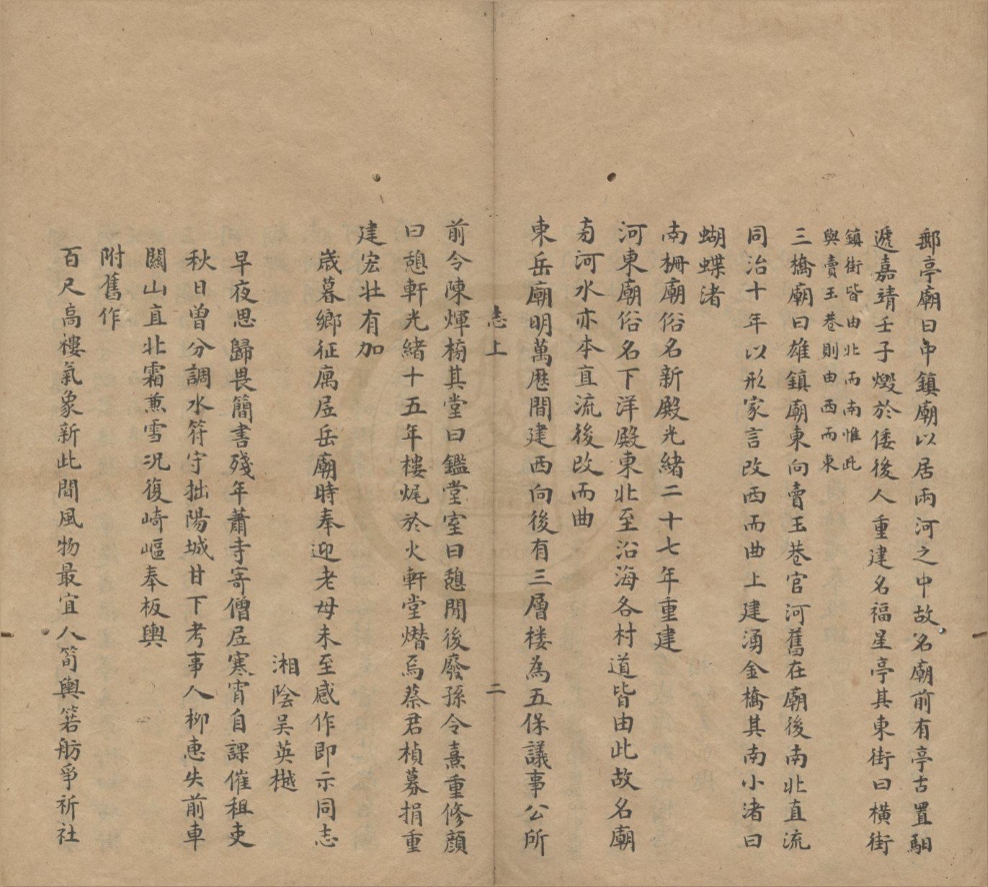 郵亭廟曰中鎮廟以居兩河之中故名廟前有亭古置馹
遞嘉靖壬子燬於倭後人重建名福星亭其東街曰橫街
鎮街皆由北而南惟此
與賣玉巷則由西而東
三橋廟曰雄鎮廟東向賣玉巷官河舊在廟後南北直流
同治十年以形家言改西而曲上建湧金橋其南小渚曰
蝴蝶渚
南柵廟俗名新殿光緒二十七年重建
河東廟俗名下洋殿東北至沿海各村道皆由此故名廟
南河水亦本直流後改而曲
東岳廟明萬厯間建西向後有三層楼為五保議事公所
志上
二
前令陳煇楠其堂曰鑑堂室曰憩閒後廢孫令熹重修顏
曰憩軒光緒十五年樓燬於火軒堂熸焉蔡君楨募捐重
建宏壯有加
歲暮鄉征寓居岳廟時奉迎老母未至感作即示同志
湘陰吳英樾
早夜思歸畏簡書殘年蕭寺寄僧居寒宵自課催租吏
秋日曽分調水符守拙陽城甘下考事人柳惠失前車
關山直北霜兼雪况復崎嶇奉板輿
附舊作
百尺高樓氣象新此間風物最宜人筍輿箬舫爭祈社